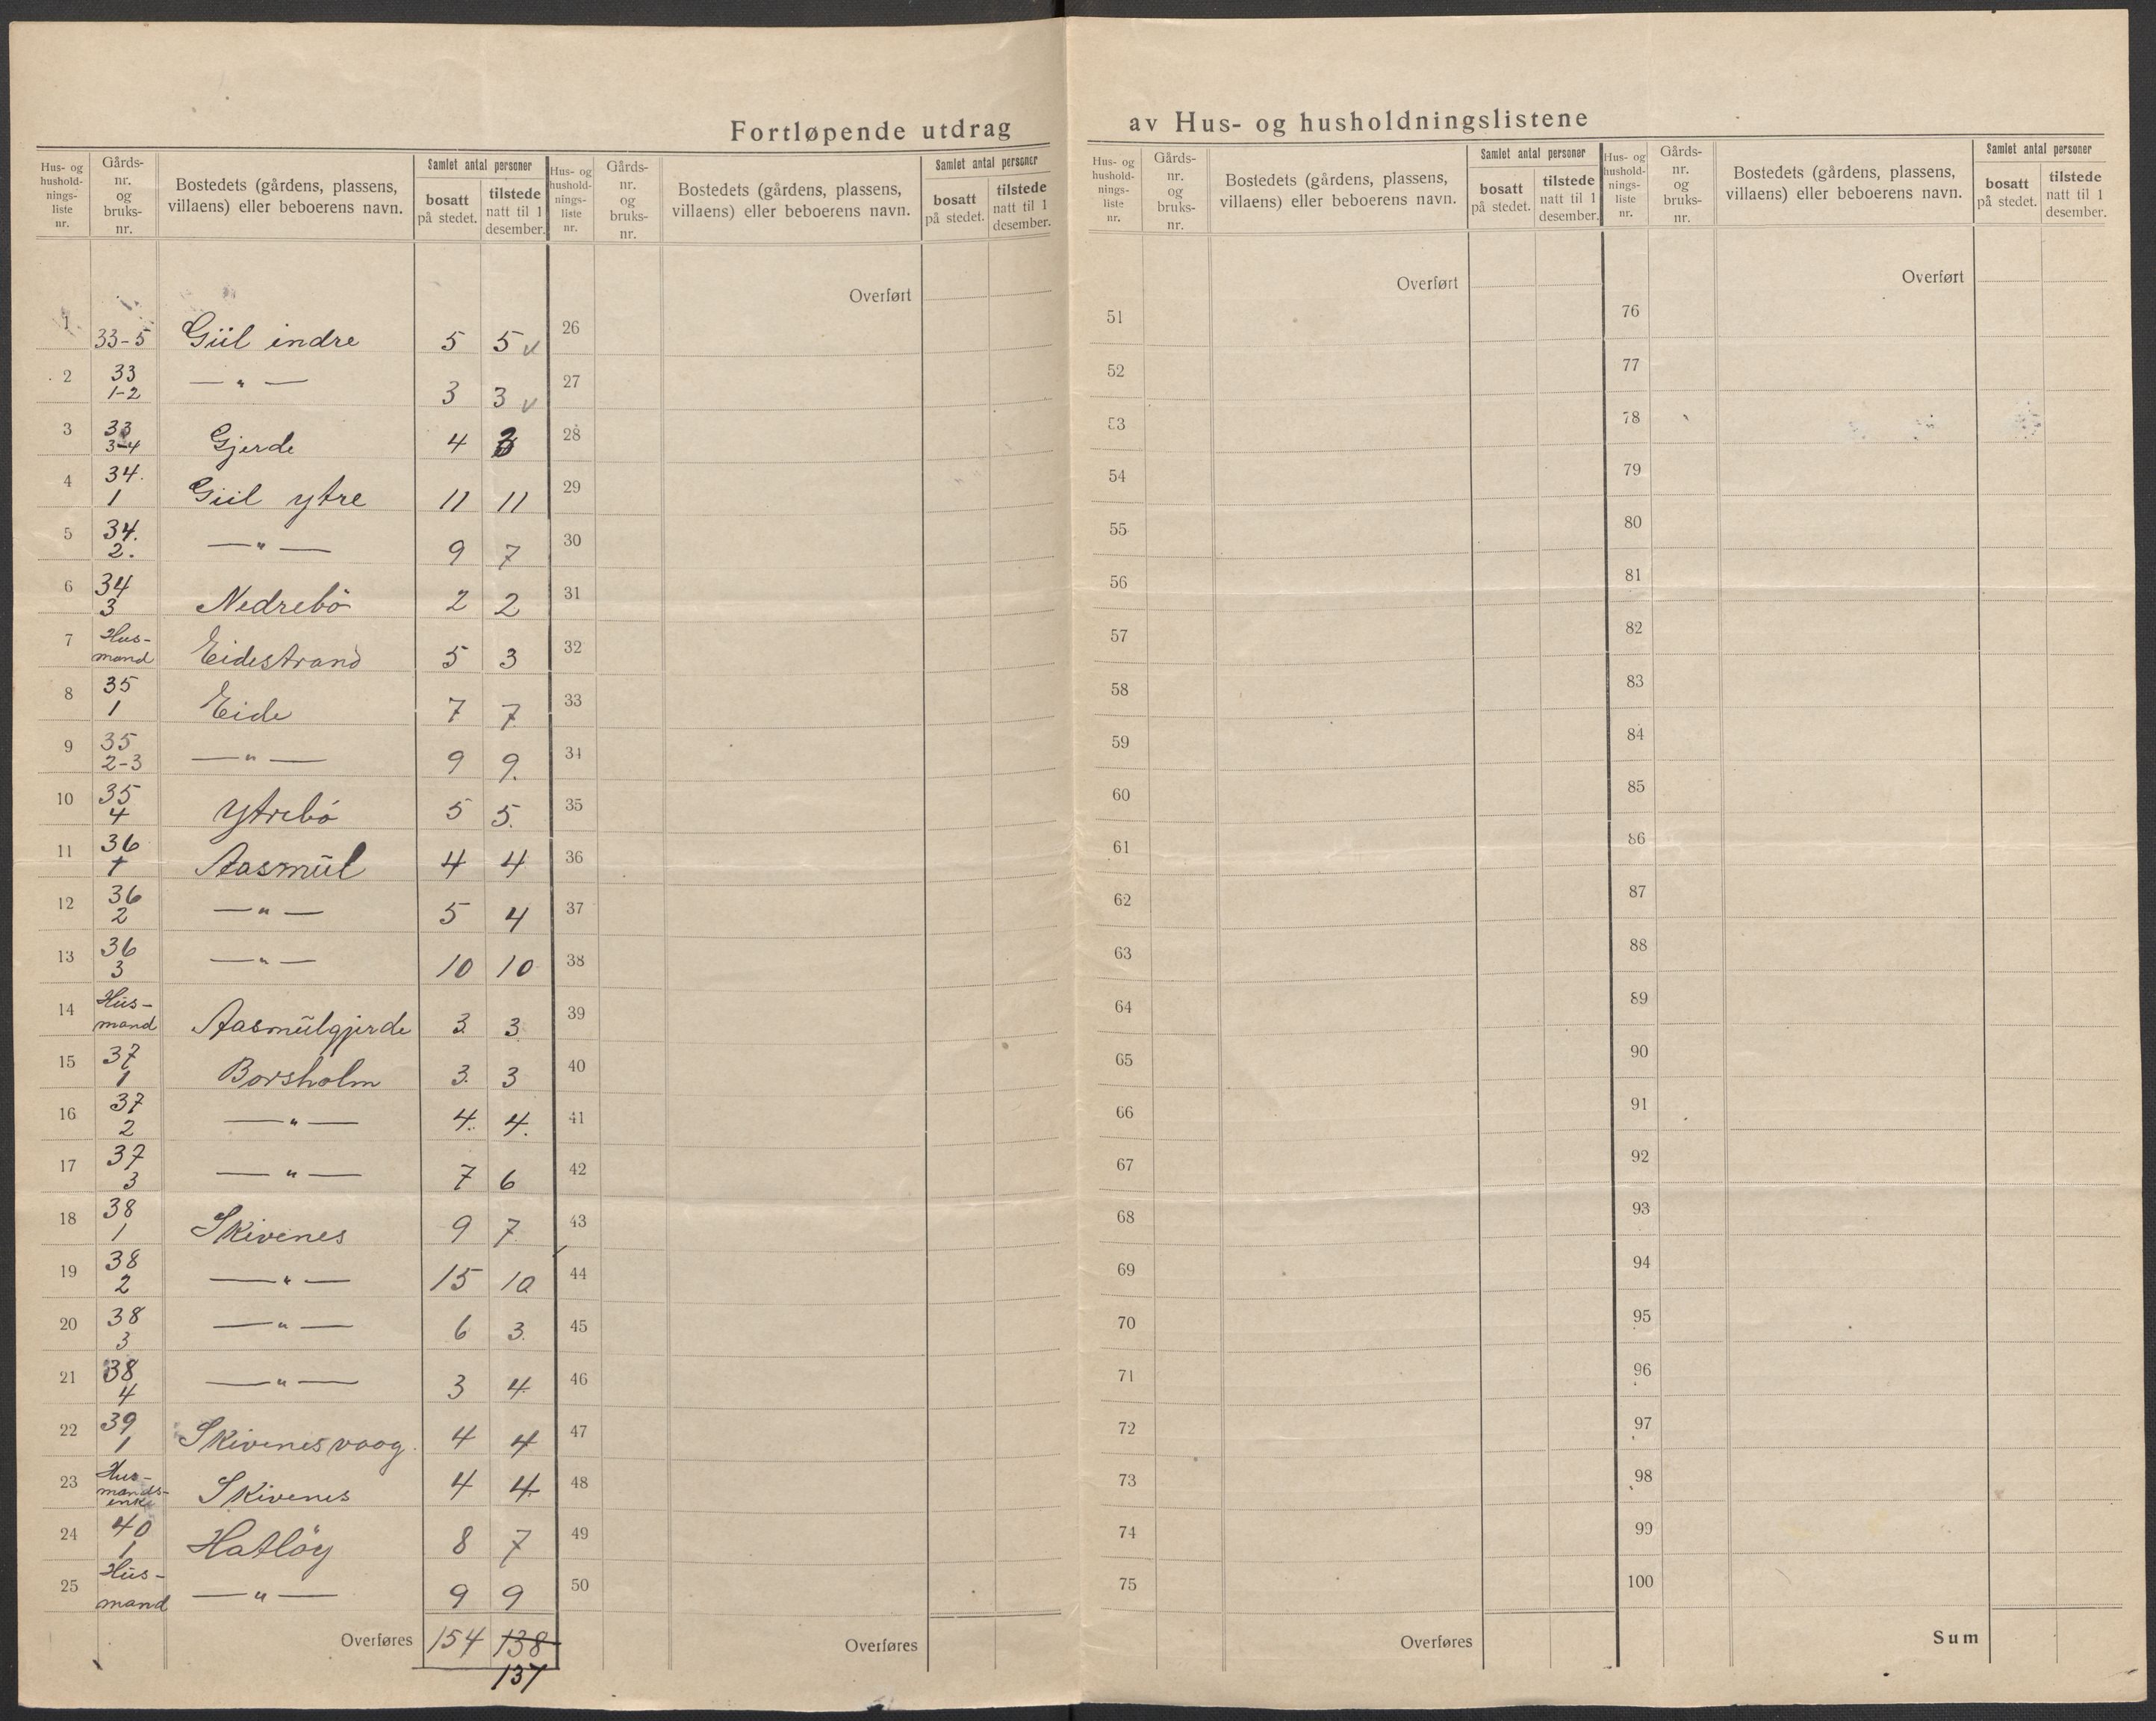 Fortløpende utdrag av Hus- og husholdningslistene
Hus- og husholdnings-liste nr. | Gårds-nr. og bruks-nr. | Bostedets (gårdens, plassens, villaens) eller beboerens navn. | Samlet antal personer bosatt på stedet. | tilstede natt til 1 desember.
1 33-5 Giil indre 5 5 v
2 33 1-2 — " — 3 3 v
3 33 3-4 Gjerde 4 3
4 34. 1 Giil ytre 11 11
5 34. 2. — " — 9 7
6 34 3 Nedrebö 2 2
7 Hus-mand Eidestrand 5 3
8 35 1 Eide 7 7
9 35 2-3 — " — 9 9.
10 35 4 Ytrebö 5 5.
11 36 1 Aasmül 4 4
12 36 2 — " — 5 4
13 36 3 — " — 10 10
14 Hüs-mand Aasmülgjerde 3 3
15 37 1 Borsholm 3. 3
16 37 2 — " — 4. 4.
17 37 3 — " — 7 6
18 38 1 Skivenes 9 7
19 38 2 — " — 15 10
20 38 3 — " — 6 3.
21 38 4 — " — 3 4
22 39 1 Skivenesvaag. 4 4
23 Hus-mands-enke Skivenes 4 4
24 40 1 Hatlöy 8 7
25 Hüs-mand — " — 9 9
Overføres 154 138
137
Hus- og husholdnings-liste nr. | Gårds-nr. og bruks-nr. | Bostedets (gårdens, plassens, villaens) eller beboerens navn. | Samlet antal personer bosatt på stedet. | tilstede natt til 1 desember.
Overført
26
27
28
29
30
31
32
33
34
35
36
37
38
39
40
41
42
43
44
45
46
47
48
49
50
Overføres
Hus- og husholdnings-liste nr. | Gårds-nr. og bruks-nr. | Bostedets (gårdens, plassens, villaens) eller beboerens navn. | Samlet antal personer bosatt på stedet. | tilstede natt til 1 desember.
Overført
51
52
53
54
55
56
57
58
59
60
61
62
63
64
65
66
67
68
69
70
71
72
73
74
75
Overføres
Hus- og husholdnings-liste nr. | Gårds-nr. og bruks-nr. | Bostedets (gårdens, plassens, villaens) eller beboerens navn. | Samlet antal personer bosatt på stedet. | tilstede natt til 1 desember.
Overført
76
77
78
79
80
81
82
83
84
85
86
87
88
89
90
91
92
93
94
95
96
97
98
99
100
Sum